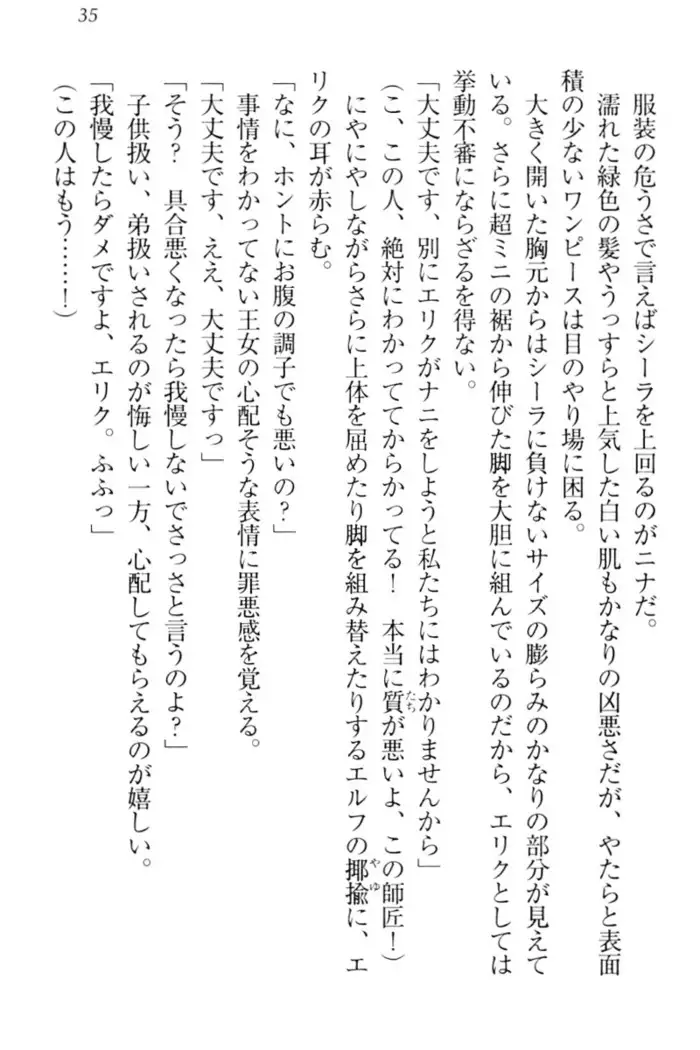 35
服装の危うさで言えばシーラを上回るのがニナだ。
濡れた緑色の髪やうっすらと上気した白い肌もかなりの凶悪さだが、やたらと表面
積の少ないワンピースは目のやり場に困る。
大きく開いた胸元からはシーラに負けないサイズの膨らみのかなりの部分が見えて
いる。さらに超ミニの裾から伸びた脚を大胆に組んでいるのだから、エリクとしては
挙動不審にならざるを得ない。
「大丈夫です、別にエリクがナニをしようと私たちにはわかりませんから」
(こ、この人、絶対にわかっててからかってる! 本当に質が悪いよ、この師匠!)
たち
にやにやしながらさらに上体を屈めたり脚を組み替えたりするエルフの揶揄に、エ
やゆ
リクの耳が赤らむ。
「なに、ホントにお腹の調子でも悪いの?」
事情をわかってない王女の心配そうな表情に罪悪感を覚える。
「大丈夫です、ええ、大丈夫ですっ」
「そう? 具合悪くなったら我慢しないでさっさと言うのよ?」
子供扱い、弟扱いされるのが悔しい一方、心配してもらえるのが嬉しい。
「我慢したらダメですよ、エリク。ふふっ」
(この人はもう……!)